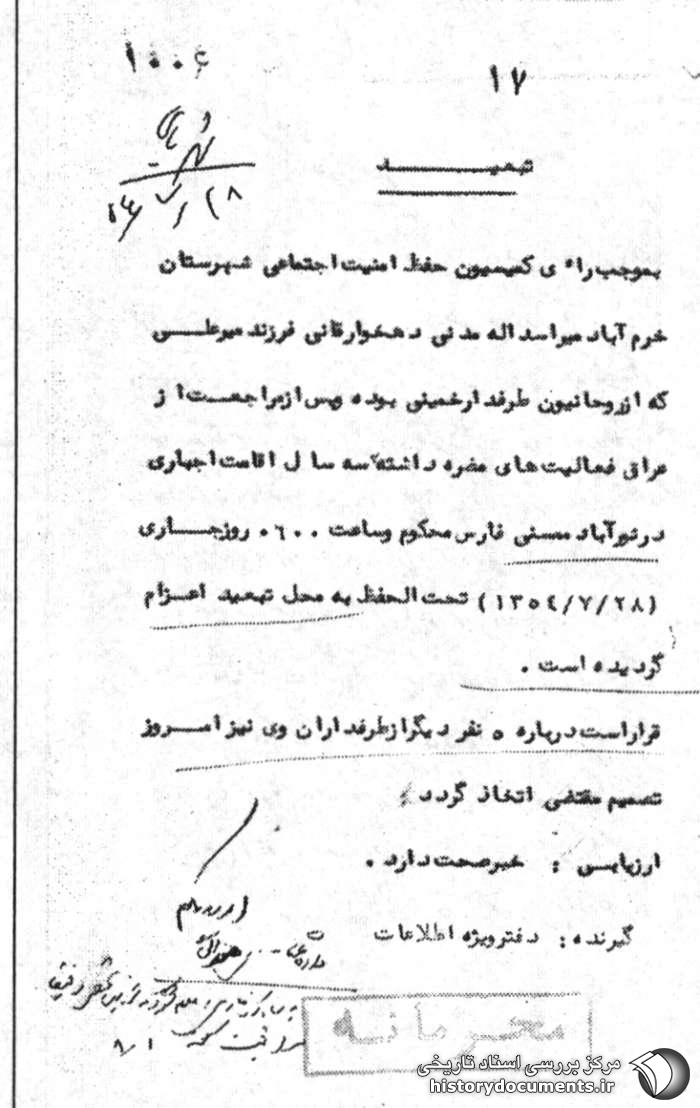 ۱۰۰۶
۱۷
تبعیـــــــــــد
۲۸
بموجب راء ی کمیسیون حفظ امنیت اجتماعی شهرستان
خرم آباد میراسداله مدنی دهخوارقانی فرزند میرعلـــی
که ازروحانیون طرفدارخمینی بوده وپس ازمراجعـــت از
عراق فعالیت های مضره داشته سه سال اقامت اجباری
درنورآباد ممسنی فارس محکوم وساعت ۰۶۰۰ روزجـــاری
(۱۳۵٤/۷/۲۸) تحت الحفظ به محل تبعید اعـــزام
گردیده است .
قراراست درباره ۵ نفر دیگرازطرفداران وی نیز امـــروز
تصمیم مقتضی اتخاذ گردد
ارزیابــی : خبرصحت دارد .
گیرنده : دفترویژه اطلاعات
محرمانه
۸/۱
مرکز بررسی اسناد تاریخی
historydocuments.ir